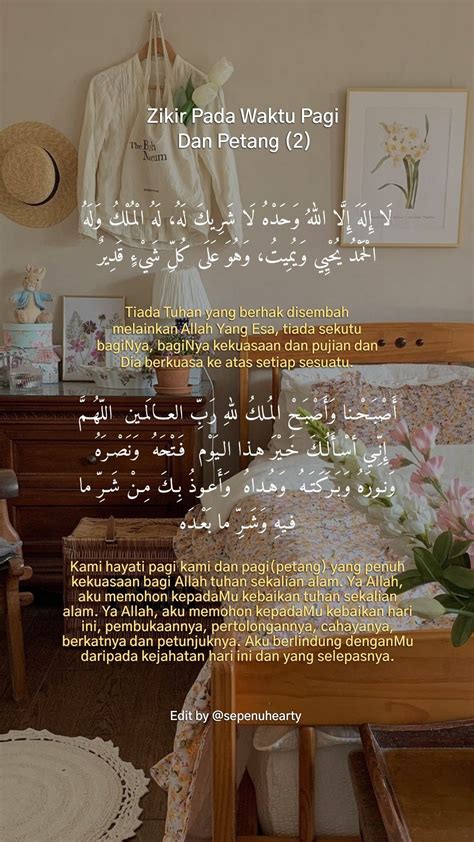 Zikir Pada Waktu Pagi
Dan Petang (2)
لَا إِلَهَ إِلَّا اللهُ وَحْدَهُ لَا شَرِيكَ لَهُ، لَهُ الْمُلْكُ وَلَهُ
الْحَمْدُ يُحْيِي وَيُمِيتُ، وَهُوَ عَلَى كُلِّ شَيْءٍ قَدِيرٌ
Tiada Tuhan yang berhak disembah
melainkan Allah Yang Esa, tiada sekutu
bagiNya, bagiNya kekuasaan dan pujian dan
Dia berkuasa ke atas setiap sesuatu.
أَصْبَحْنا وَأَصْبَحْ المُلكُ للهِ رَبِّ العـالَمـين اللّهُـمَّ
إِنِّي أسْأَلُـكَ خَـيْرَ هـذا الـيَوْم فَـتْحَهُ وَنَصْـرَهُ
وَنـورَهُ وَبَـرَكَتَـهُ وَهُـداهُ وَأَعـوذُ بِـكَ مِـنْ شَـرِّ ما
فـيهِ وَشَـرِّ ما بَعْـدَه
Kami hayati pagi kami dan pagi(petang) yang penuh
kekuasaan bagi Allah tuhan sekalian alam. Ya Allah,
aku memohon kepadaMu kebaikan tuhan sekalian
alam. Ya Allah, aku memohon kepadaMu kebaikan hari
ini, pembukaannya, pertolongannya, cahayanya,
berkatnya dan petunjuknya. Aku berlindung denganMu
daripada kejahatan hari ini dan yang selepasnya.
Edit by @sepenuhearty